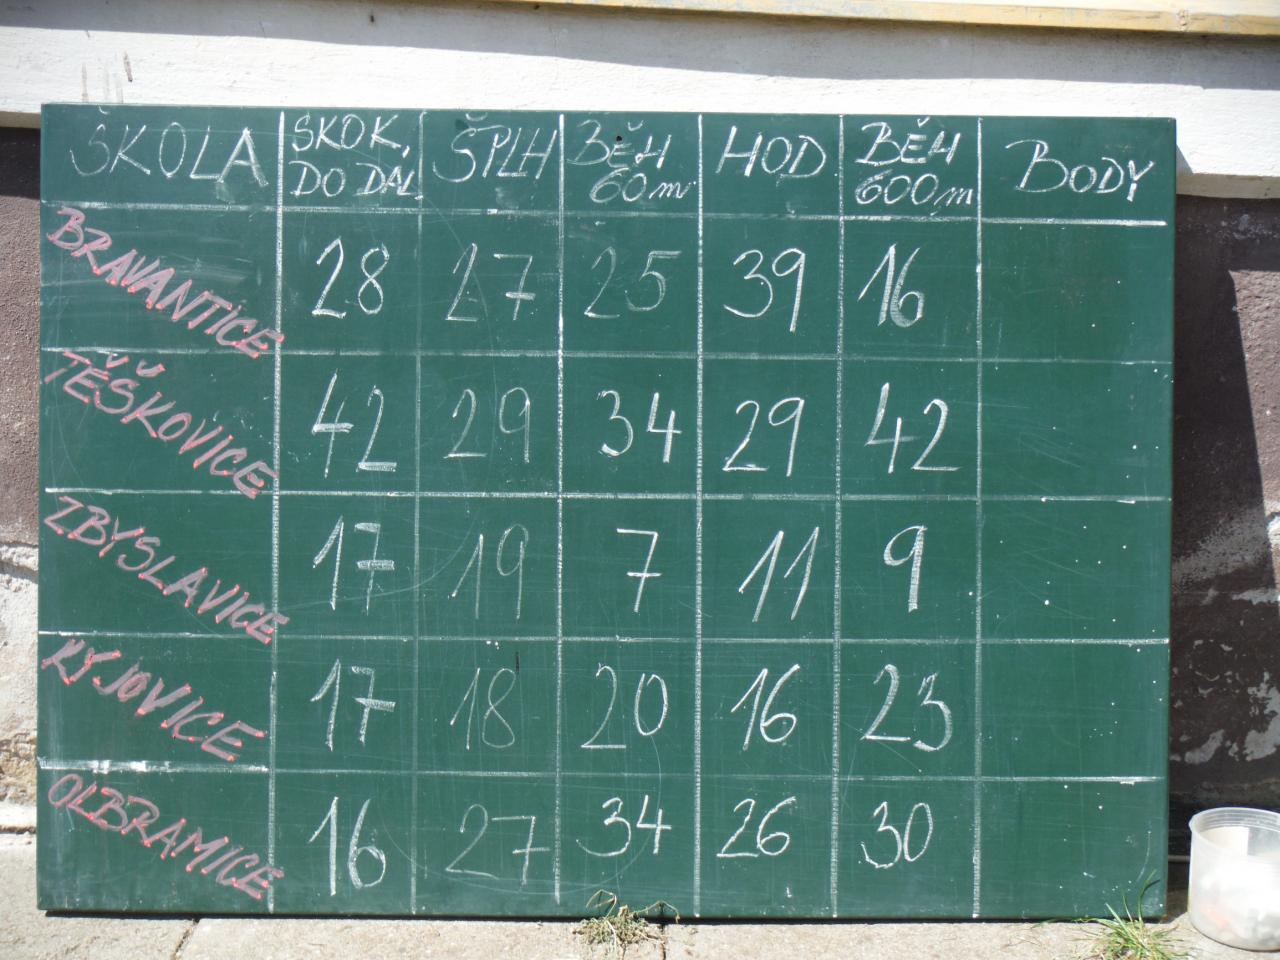 ŠKOLA SKOK, DO DAL ŠPLH BĚH 60m HOD BĚH 600m BODY
BRAVANTICE 28 27 25 39 16
TĚŠKOVICE 42 29 34 29 42
ZBYSLAVICE 17 19 7 11 9
KYJOVICE 17 18 20 16 23
OLBRAMICE 16 27 34 26 30